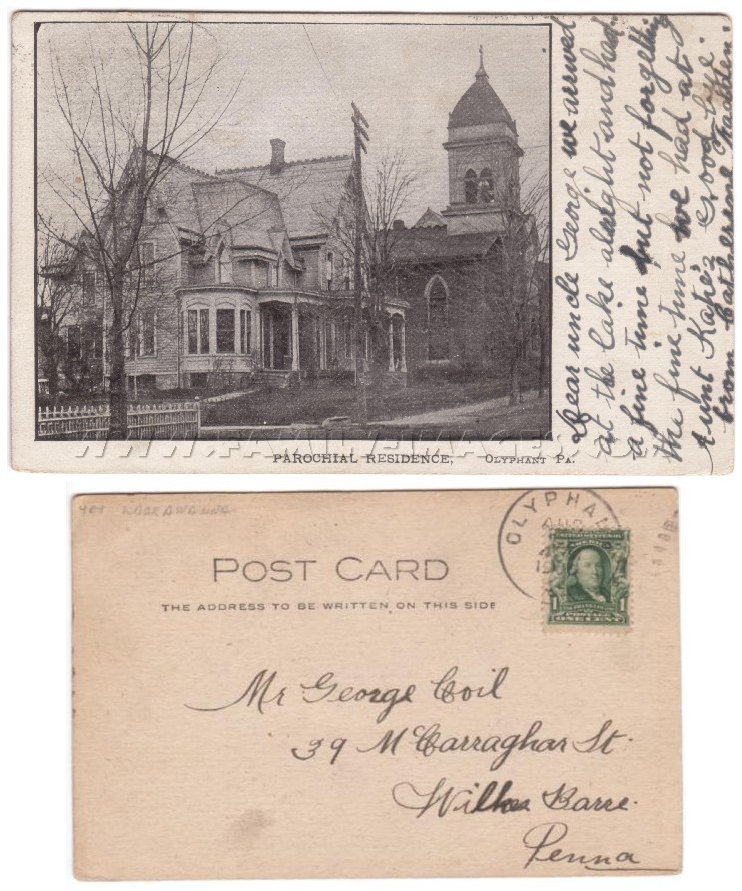 Dear uncle George we arrived
at the lake alright and had
a fine time but not forgetting
the fine time we had at
Aunt Kate's Good bye
from Catherine Madden.
WWW.FAMILYIMAGES.COM
PAROCHIAL RESIDENCE, OLYPHANT PA.
404 LACKAWANNA
OLYPHAN
AUG
POST CARD
THE ADDRESS TO BE WRITTEN ON THIS SIDE
1 POSTAGE 1
ONE CENT
Mr George Coil
39 McCarraghar St.
Wilkes Barre.
Penna